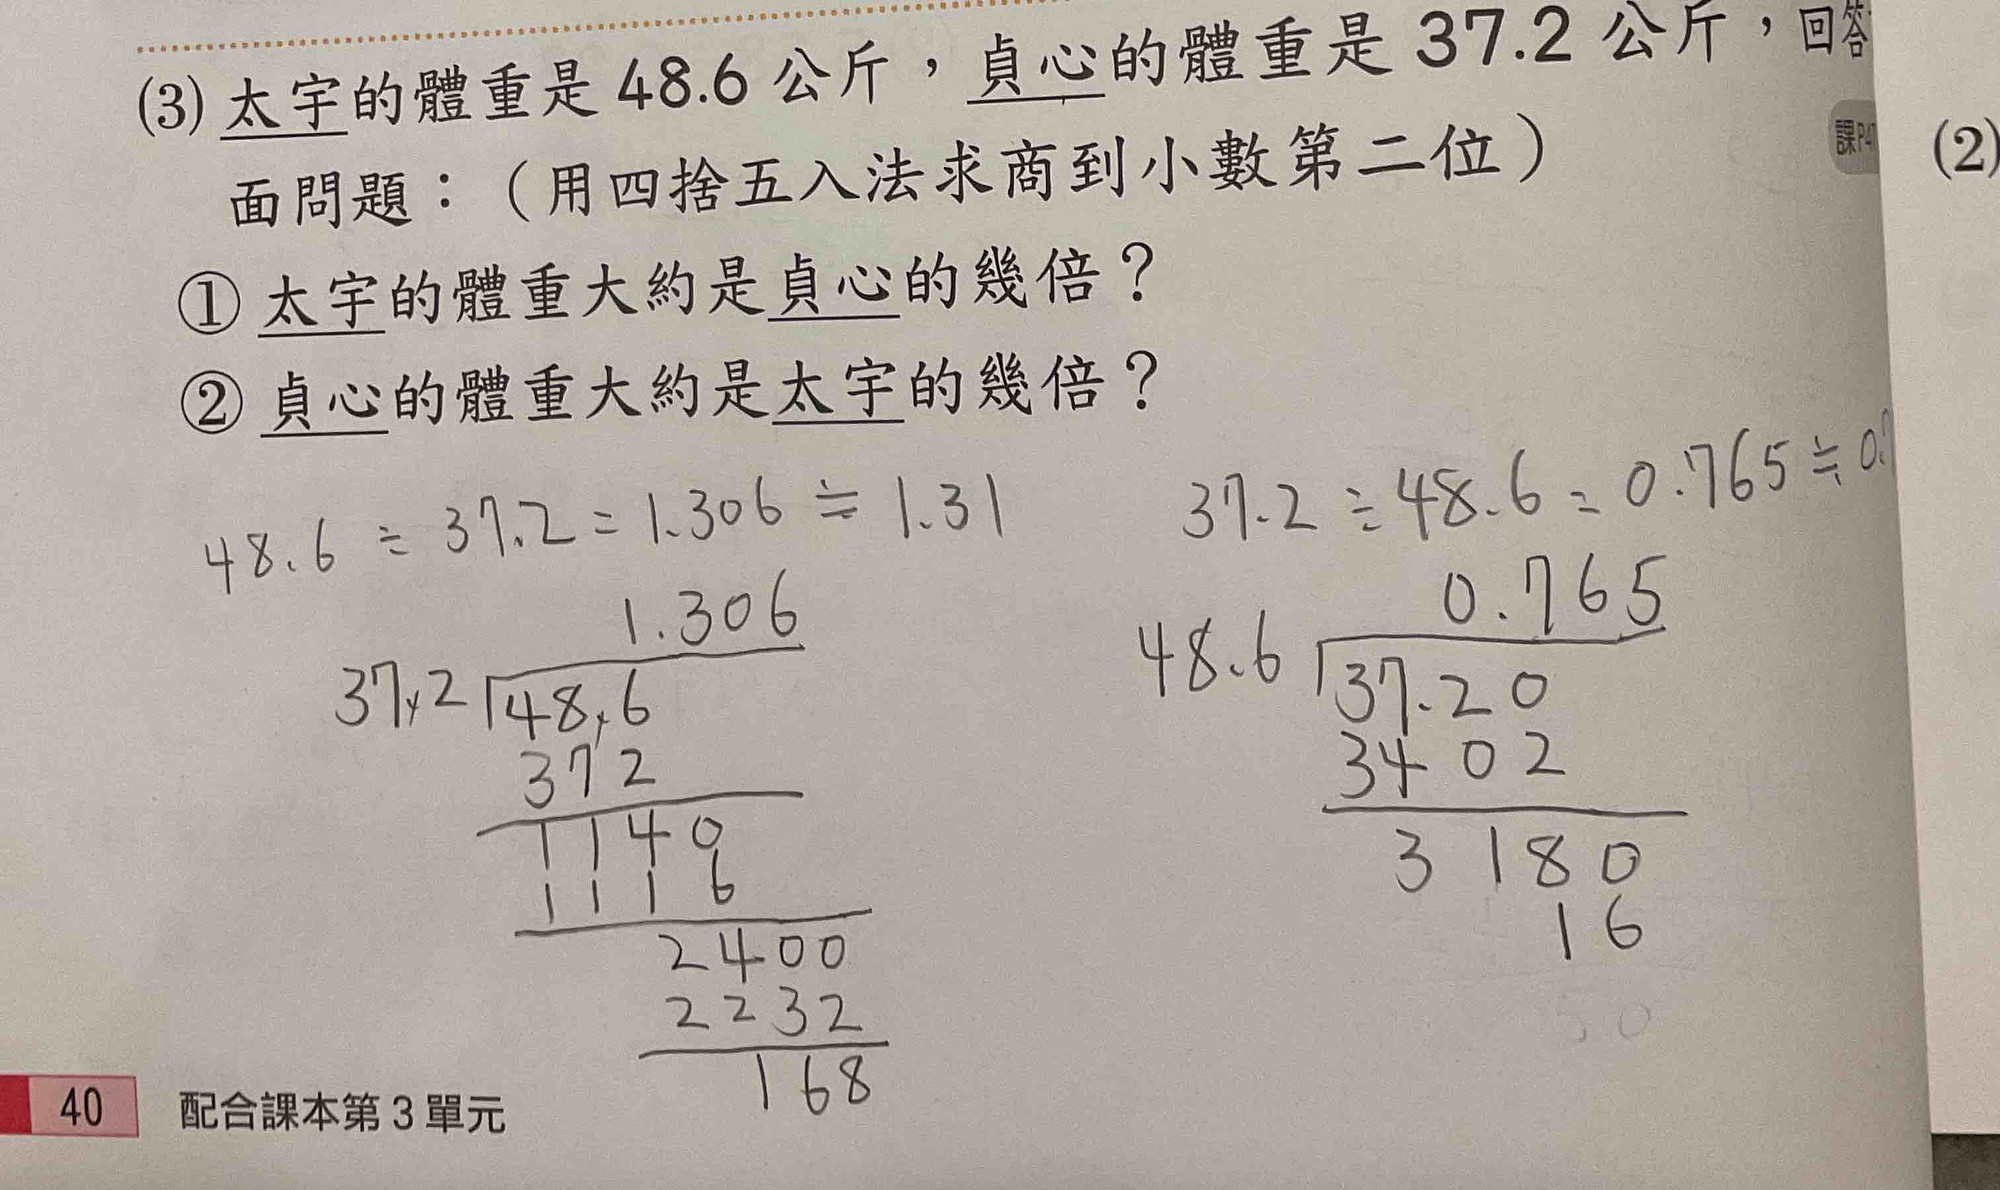 (3) 太宇的體重是 48.6 公斤，貞心的體重是 37.2 公斤，回答
面問題：（用四捨五入法求商到小數第二位）
課P47
(2)
① 太宇的體重大約是貞心的幾倍？
② 貞心的體重大約是太宇的幾倍？
48.6 ÷ 37.2 = 1.306 ≒ 1.31
1.306
37.2 48.6
372
1140
1116
2400
2232
168
37.2 ÷ 48.6 = 0.765 ≒ 0.
0.765
48.6 37.20
3402
3180
16
40 配合課本第 3 單元